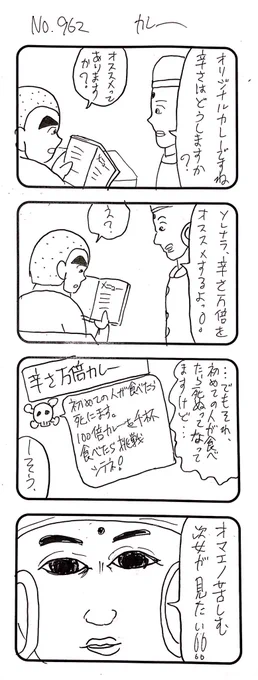 No.962
カレー
オリジナルカレーですね
辛さはどうしますか
?
オススメって
ありますか?
メニュー
ソレナラ、辛さ万倍を
オススメするよっ○!
え?
メニュー
…でもそれ、
初めての人が食べ
たら死ぬってなって
ますけど…
辛さ万倍カレー
初めての人が食べたら
死にます。
100倍カレーを千杯
食べたら挑戦
シテネ!
しそう、
オマエノ苦しむ
姿が見たい